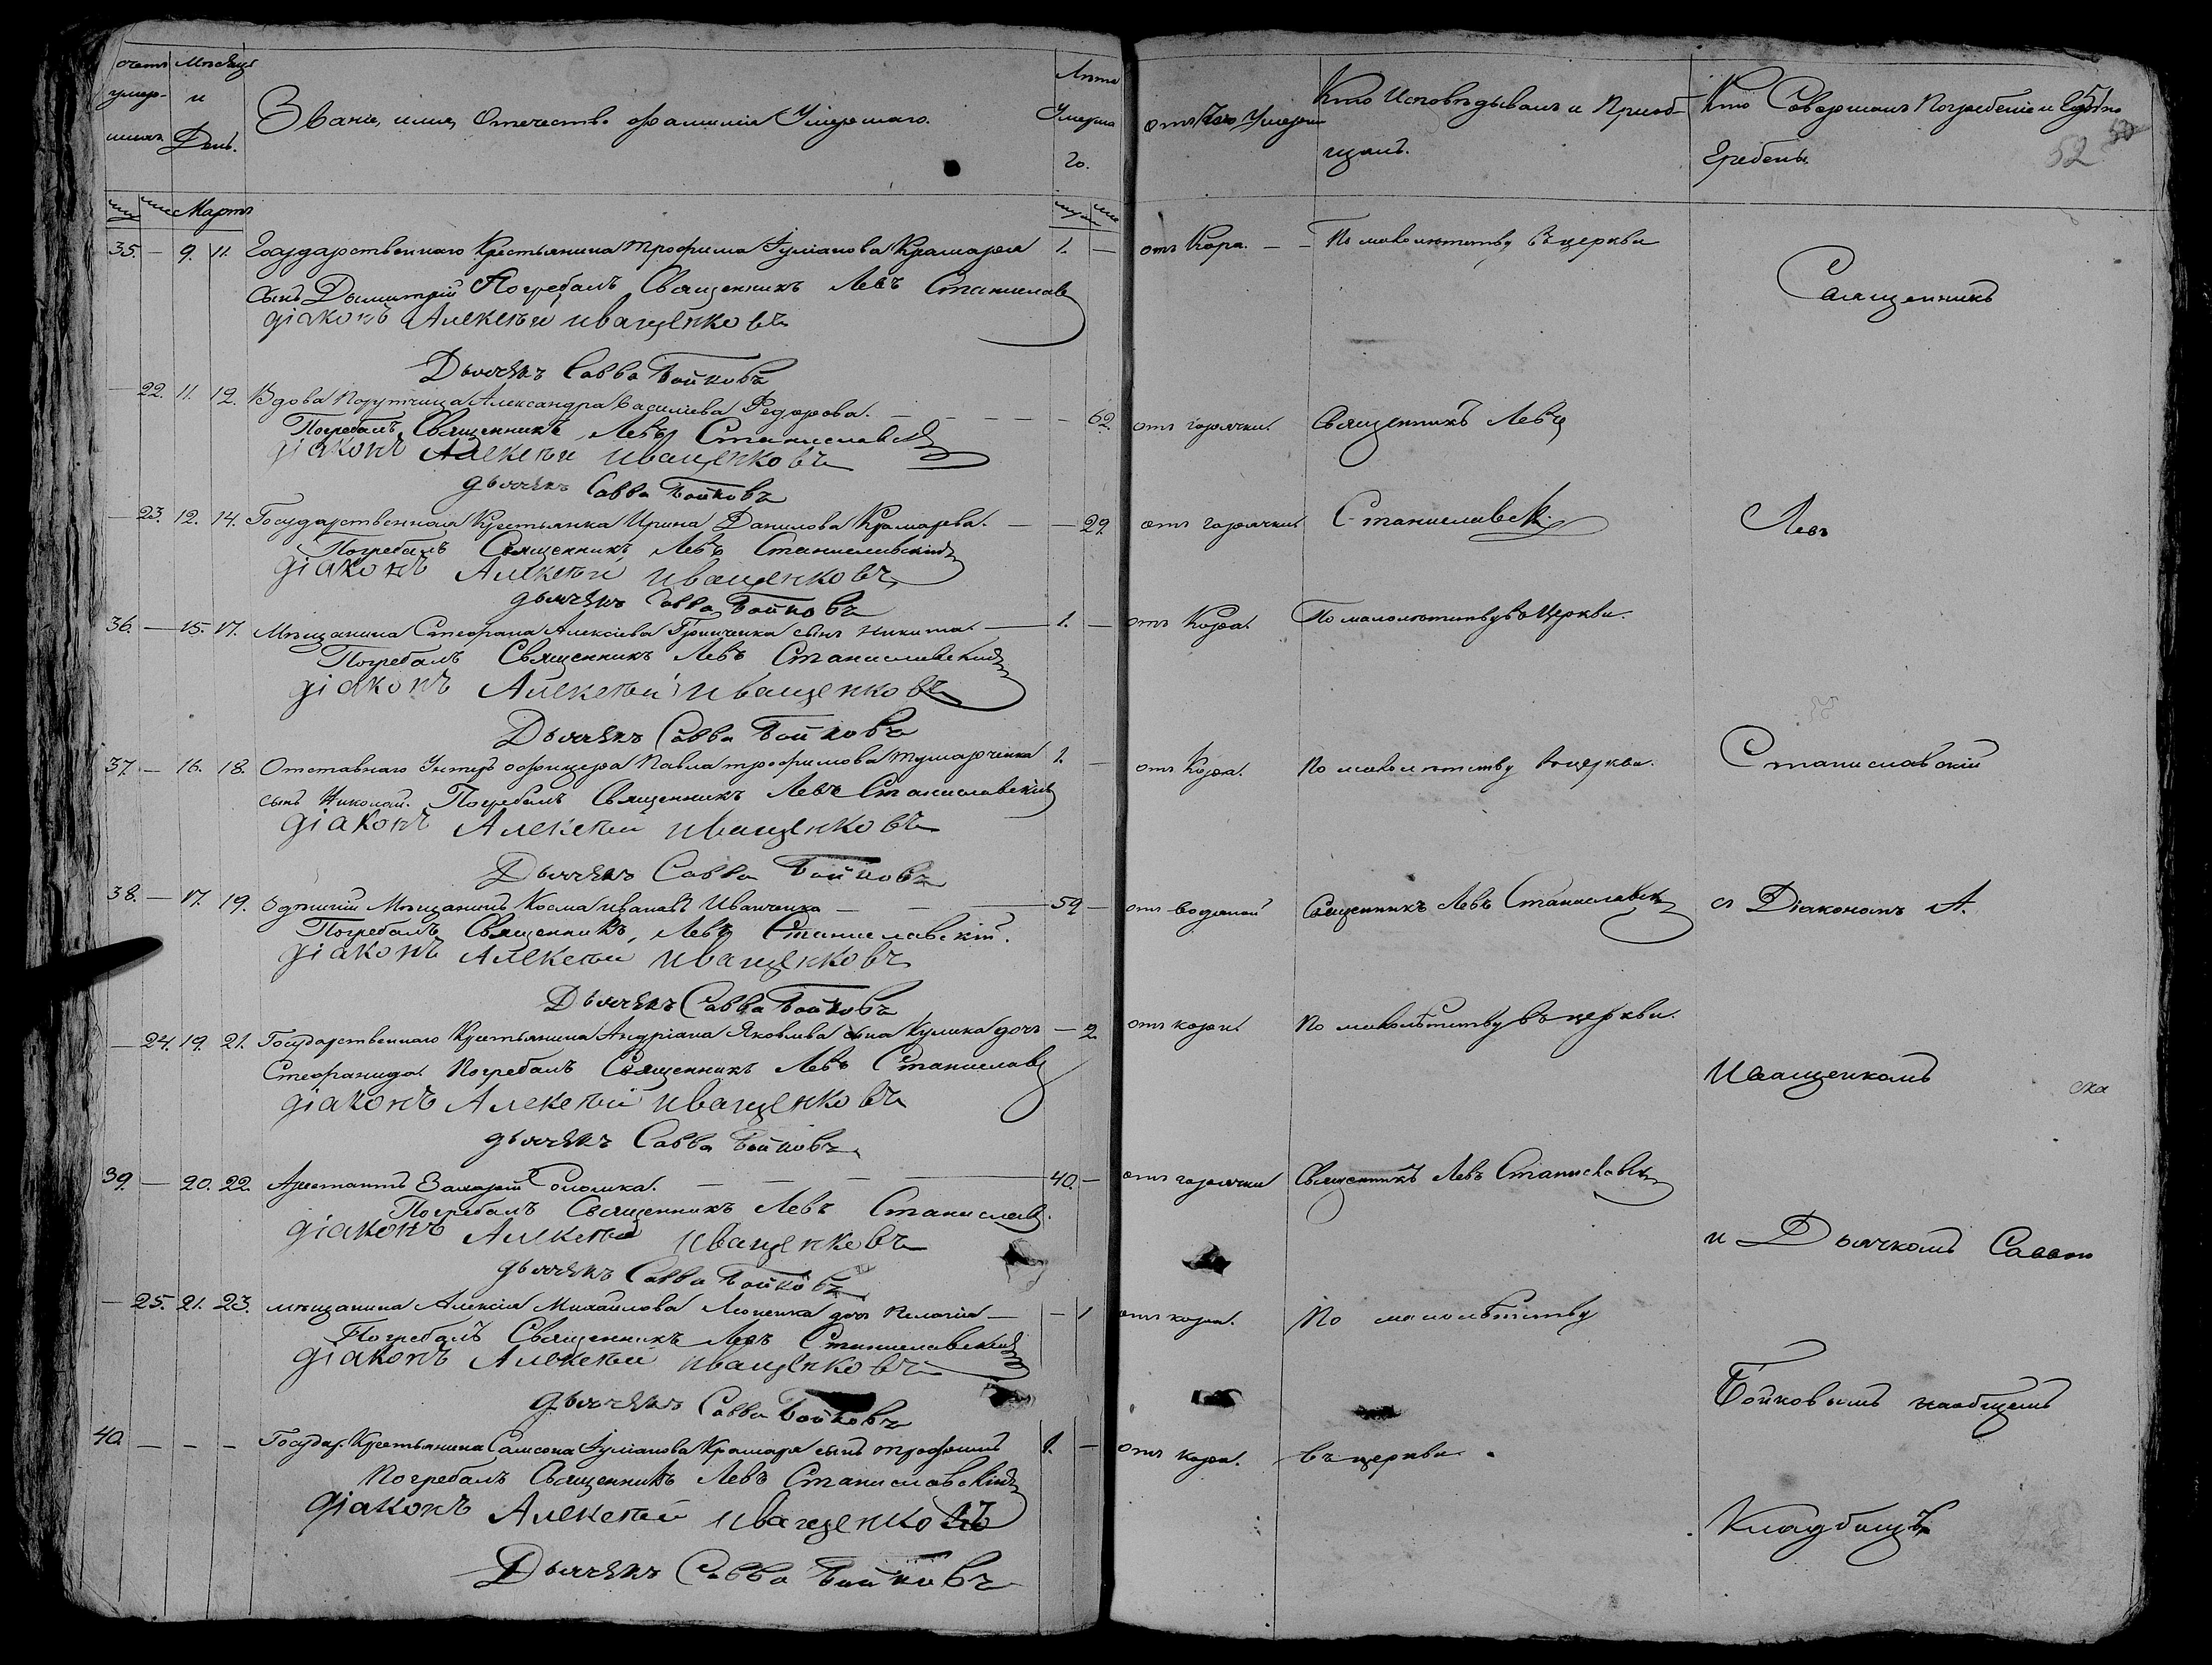 счетъ умер-шихъ
Мѣсяцъ и День.
Званіе, имя, Отечество фамилія Умершаго.
Лѣта Умершаго.
отъ Чего Умеръ
Кто Исповѣдывалъ и Пріоб-
щалъ.
Кто Совершалъ Погребеніе и Гдѣ По
гребены
52
Мартъ
35. — 9. 11. Государственнаго Крестьянина Трофима Іуліанова Крамаря 1. — отъ Кора. — По малолѣтству въ церкви
сынъ Димитрій Погребалъ Священникъ Левъ Станислав
діаконъ Алексѣй Иващенковъ
Дьячекъ Савва Бойковъ
Священникъ
— 22. 11. 12. Вдова Порутчица Александра Василіева Федорова. — 62. отъ горячки. Священникъ Левъ
Погребалъ Священникъ Левъ Станиславск
діаконъ Алексѣй Иващенковъ
дьячекъ Савва Бойковъ
— 23. 12. 14. Государственная Крестьянка Ирина Данилова Крамарева. — 29. отъ горячки Станиславск.
Левъ
Погребалъ Священникъ Левъ Станиславскій
діаконъ Алексѣй Иващенковъ
дьячекъ Савва Бойковъ
36. — 15. 17. Мѣщанина Стефана Алексіева Гринченка сынъ Никита. — 1. — отъ Кора. По малолѣтству въ Церкви.
Погребалъ Священникъ Левъ Станиславскій
діаконъ Алексѣй Иващенковъ
Дьячекъ Савва Бойковъ
37. — 16. 18. Отставнаго Унтеръ офицера Павла трофимова 1. — отъ Кора. По малолѣтству въ церкви.
Станиславскій
сынъ Николай. Погребалъ Священникъ Левъ Станиславскій
діаконъ Алексѣй Иващенковъ
Дьячекъ Савва Бойковъ
38. — 17. 19. Мѣщанинъ Косма Ивановъ Иванченко — 59 — отъ водяной Священникъ Левъ Станиславск
съ Діакономъ А.
Погребалъ Священникъ, Левъ Станиславскій.
діаконъ Алексѣй Иващенковъ
Дьячекъ Савва Бойковъ
— 24. 19. 21. Государственнаго Крестьянина Андріана Яковлева сына Кулика дочь — 2 отъ кори. По малолѣтству въ церкви.
Стефанида. Погребалъ Священникъ Левъ Станислав
Иващенкомъ
діаконъ Алексѣй Иващенковъ
дьячекъ Савва Бойковъ
39. — 20. 22. Арестантъ Захарій Соломка. — 40. — отъ горячки Священникъ Левъ Станиславск
Погребалъ Священникъ Левъ Станислав.
діаконъ Алексѣй Иващенковъ
и Дьячкомъ Саввою
дьячекъ Савва Бойковъ
— 25. 21. 23. мѣщанина Алексія Михайлова дочь Пелагія — — 1 отъ кори. По малолѣтству
Погребалъ Священникъ Левъ Станиславскій
діаконъ Алексѣй Иващенковъ
Бойковымъ на общемъ
дьячекъ Савва Бойковъ
40. — — — Государ. Крестьянина Самсона Іуліанова Крамаря сынъ трофимъ 1. — отъ кори. въ церкви.
Погребалъ Священникъ Левъ Станиславскій
діаконъ Алексѣй Иващенковъ
Кладбищѣ
Дьячекъ Савва Бойковъ